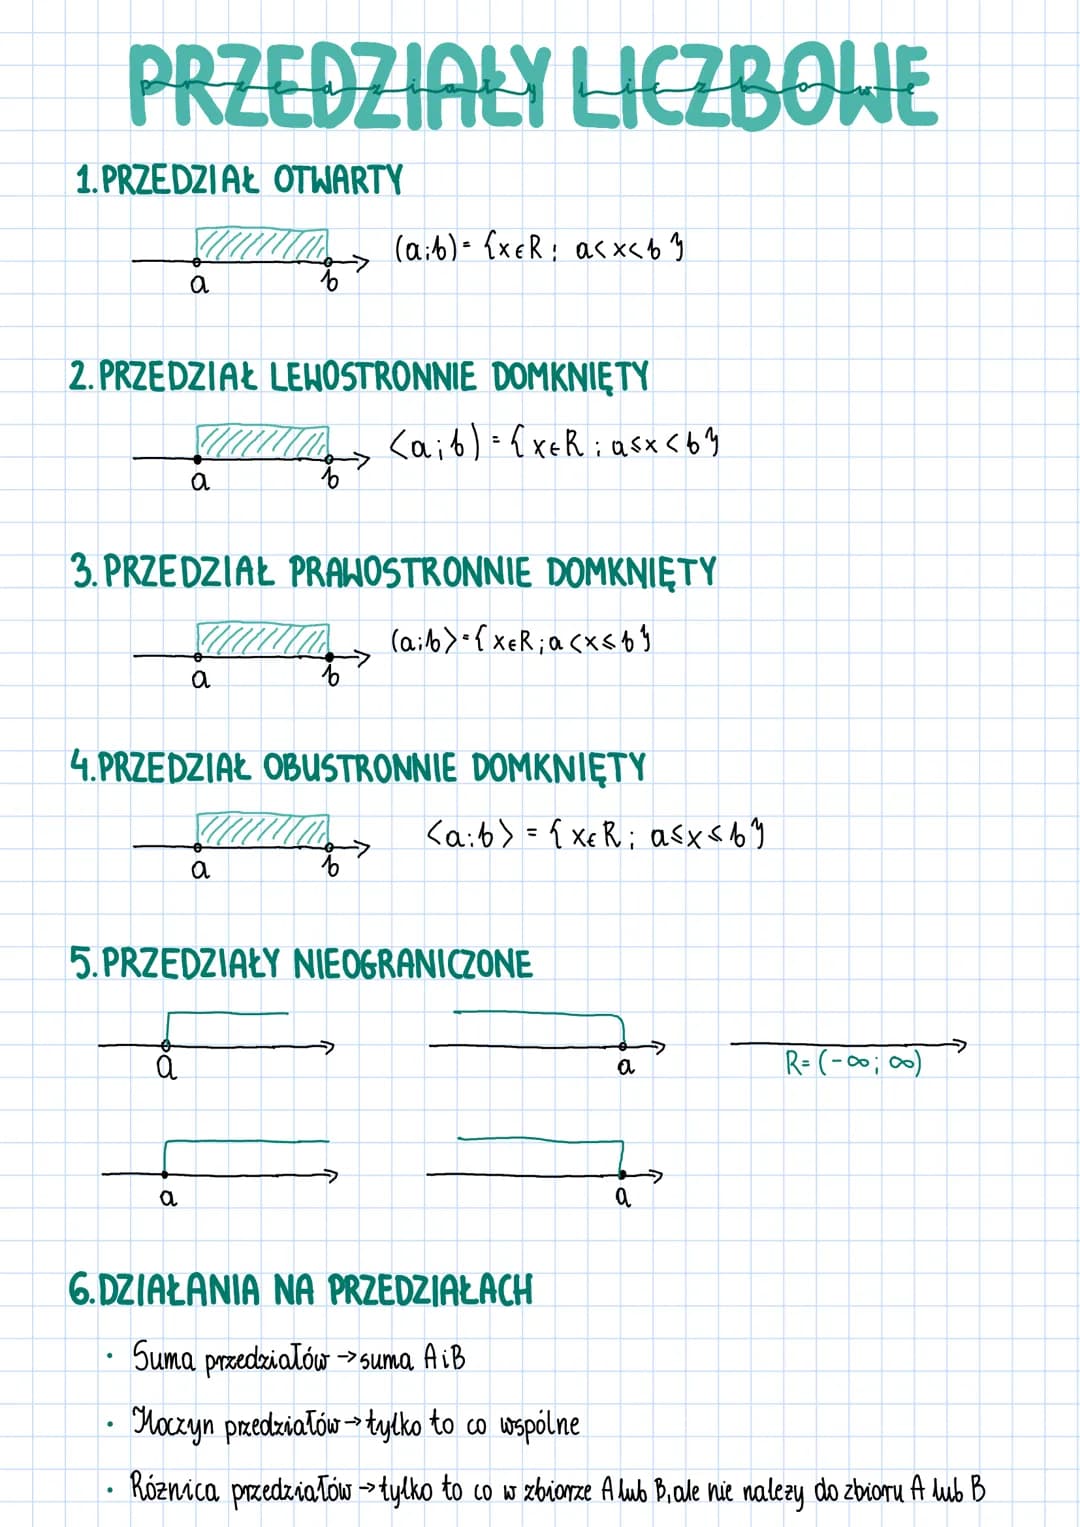 PRZEDZIAŁY LICZBOWE
przedziały liczbowe
1. PRZEDZIAŁ OTWARTY
(a;b) = {x∈R; a<x<b}
a b
2. PRZEDZIAŁ LEWOSTRONNIE DOMKNIĘTY
<a;b) = {x∈R; a≤x<b}
a b
3. PRZEDZIAŁ PRAWOSTRONNIE DOMKNIĘTY
(a;b> = {x∈R; a<x≤b}
a b
4. PRZEDZIAŁ OBUSTRONNIE DOMKNIĘTY
<a;b> = {x∈R; a≤x≤b}
a b
5. PRZEDZIAŁY NIEOGRANICZONE
a a R=(-∞; ∞)
a a
6. DZIAŁANIA NA PRZEDZIAŁACH
• Suma przedziałów → suma A i B
• Iloczyn przedziałów → tylko to co wspólne
• Różnica przedziałów → tylko to co w zbiorze A lub B, ale nie należy do zbioru A lub B